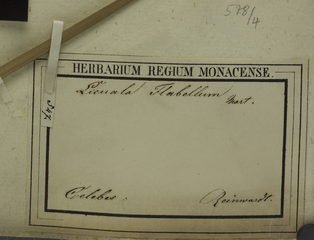 578/4
HERBARIUM REGIUM MONACENSE.
Licuala Flabellum
Mart.
Celebes.
Reinwardt.